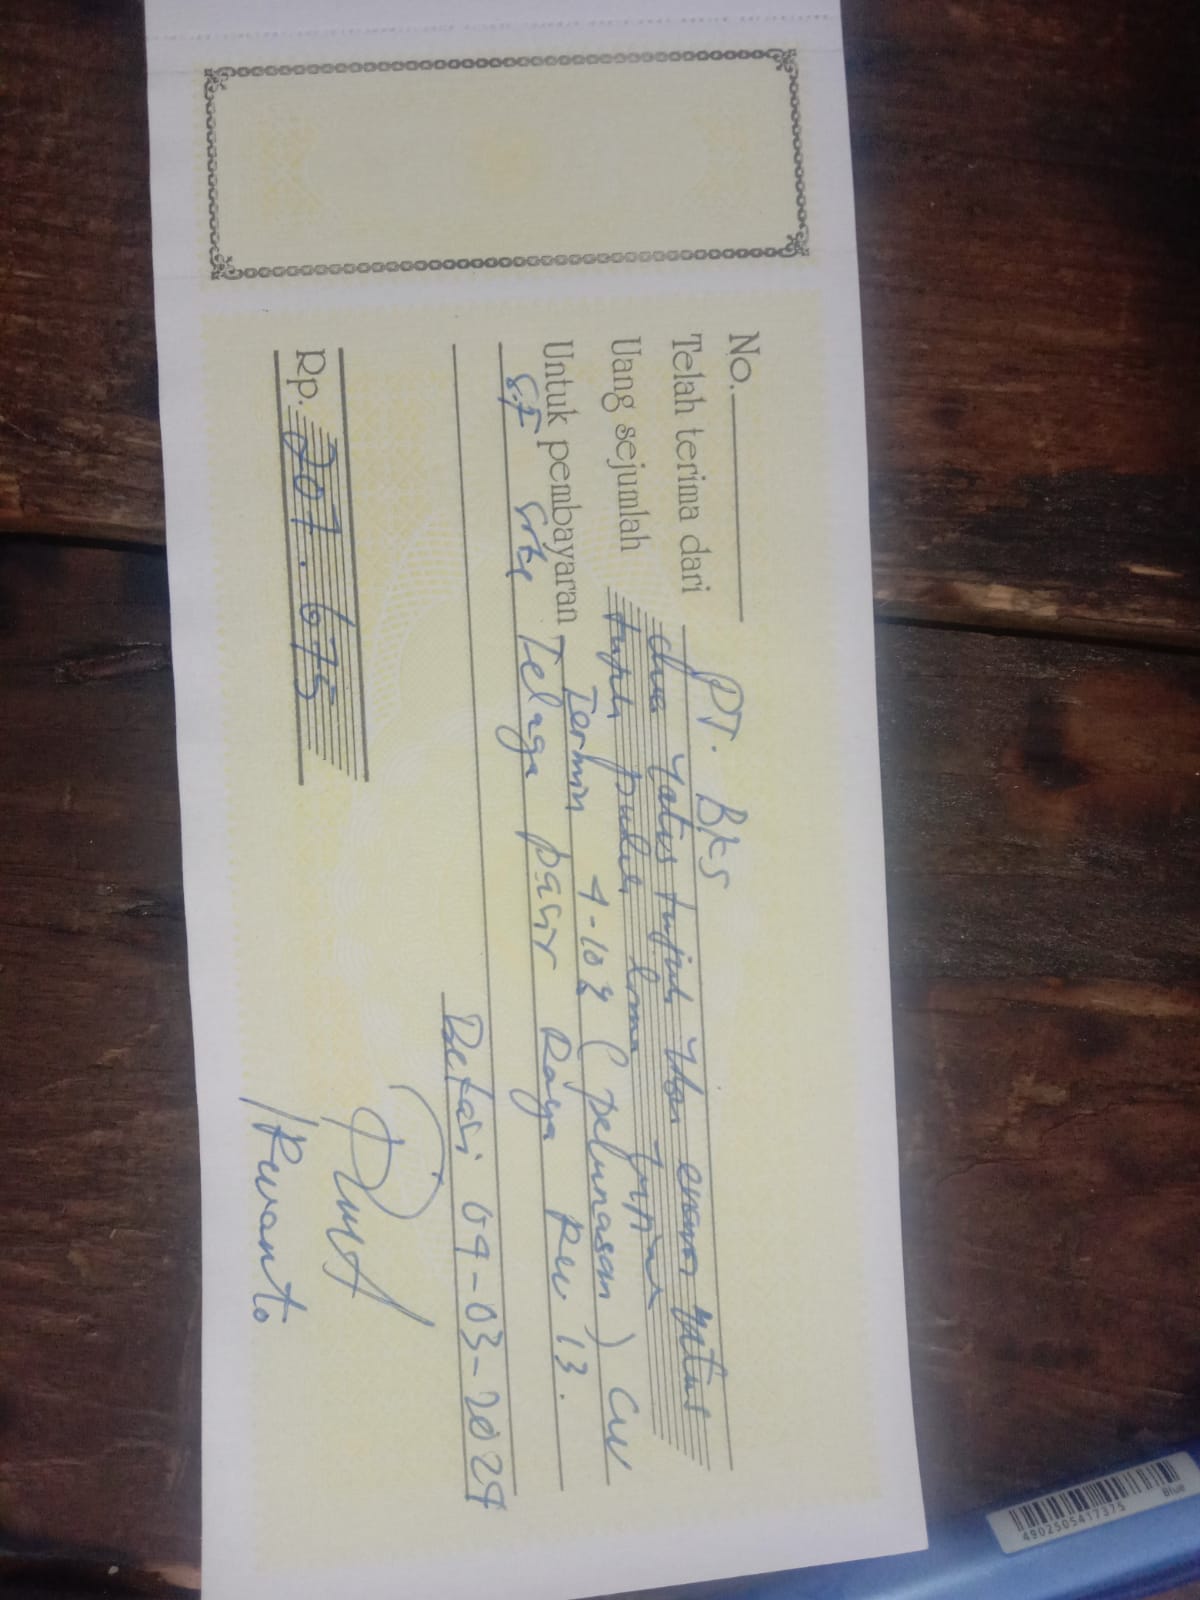 No.
Telah terima dari PT. BKS
Uang sejumlah dua ratus tujuh ribu enam ratus
tujuh puluh lima rupiah
Untuk pembayaran Termin 4-10% (pelunasan) CW
SF Site Telaga pasir Raya Rev 13.
Bekasi 09-03-2024
Rp. 207.675
Rewanto
4902505417375
Blue